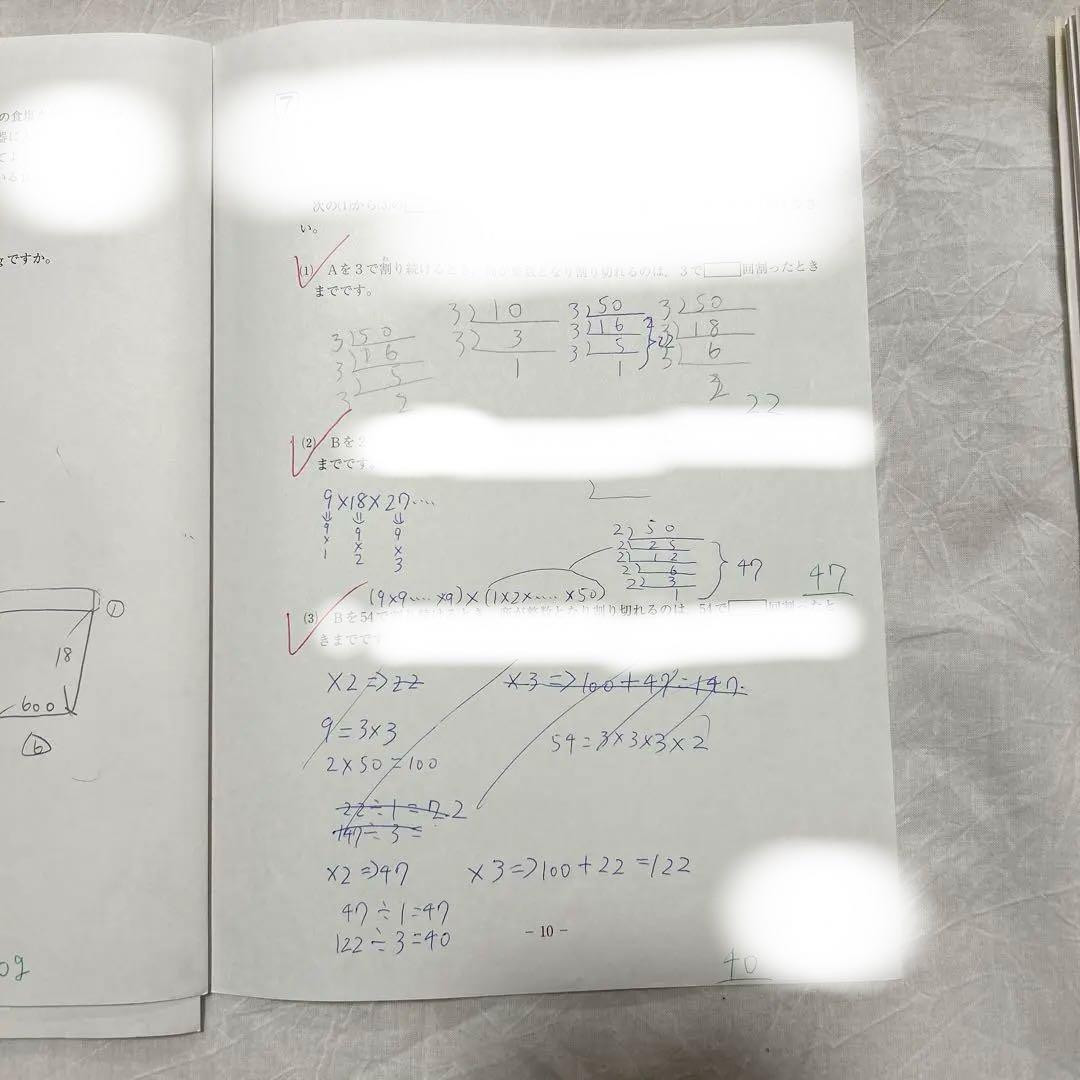 の食塩
gですか。
18
600
6
7
次の(1)から(3)の
い。
(1) Aを3で割り続けるとき、商が整数となり割り切れるのは、3で 回割ったとき
までです。
3)50
3)16
3)5
2
3)10
3)3
1
3)50
3)16
3)5
1
22
3)50
3)18
3)6
2
22
(2) Bを2
までです。
9×18×27....
9×1
9×2
9×3
2)50
2)25
2)12
2)6
2)3
1
47
47
(9×9....×9)×(1×2×....×50)
(3) Bを54で割り続けるとき、商が整数となり割り切れるのは、54で 回割ったと
きまでです
×2=>22
×3=>100+47=147
9=3×3
54=3×3×3×2
2×50=100
22÷1=22
147÷3=
×2=>47
×3=>100+22=122
47÷1=47
122÷3=40
-10-
40
0g